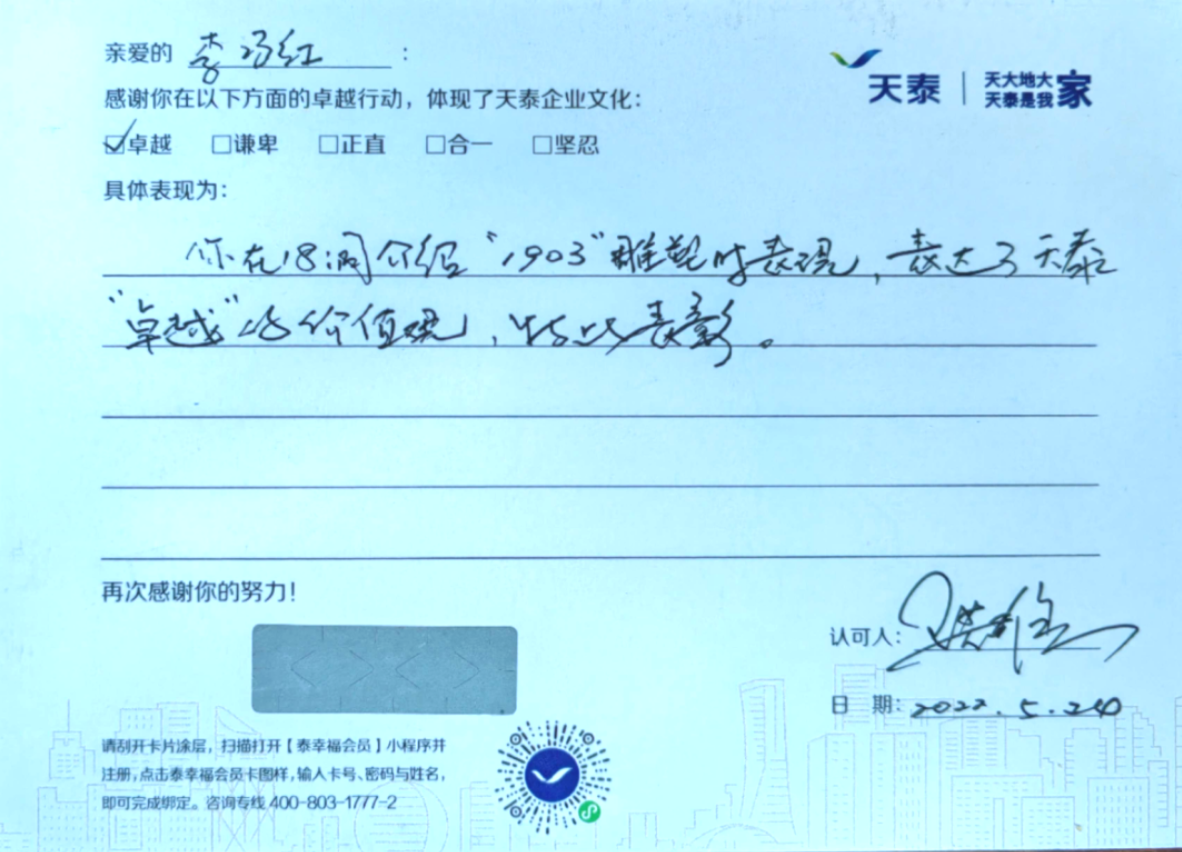 亲爱的 李巧红 :
天泰 | 天大地大 天泰是我 家
感谢你在以下方面的卓越行动，体现了天泰企业文化：
☑卓越 □谦卑 □正直 □合一 □坚忍
具体表现为：
你在18洞介绍“1903”雕塑时表现，表达了天泰
“卓越”的价值观，特此表彰。
再次感谢你的努力！
认可人：
日 期：2022.5.24
请刮开卡片涂层，扫描打开【泰幸福会员】小程序并
注册，点击泰幸福会员卡图样，输入卡号、密码与姓名，
即可完成绑定。咨询专线 400-803-1777-2